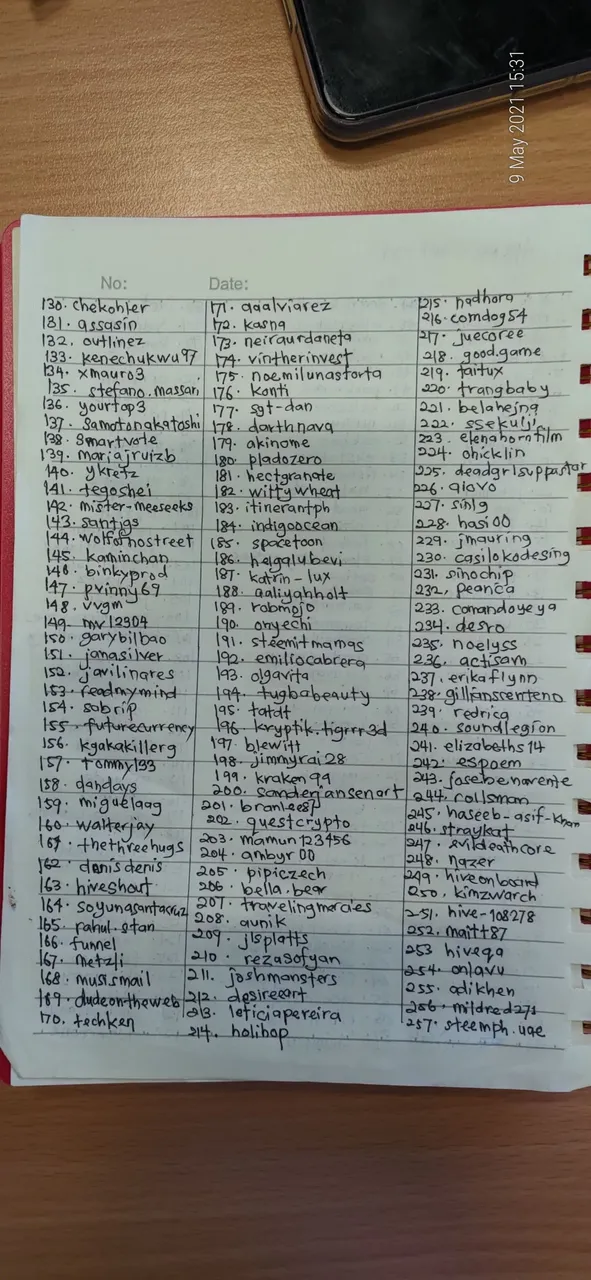 9 May 2021 15:31
No:
Date:
130. chekohler
131. assasin
132. outlinez
133. kenechukwu97
134. xmauro3
135. stefano.massari
136. yourtop3
137. samotonakatoshi
138. smartvote
139. mariajruizb
140. ykretz
141. tegoshei
142. mister-meeseeks
143. santigs
144. wolfofnostreet
145. kaminchan
146. binkyprod
147. pvinny69
148. vvgm
149. mv12304
150. garybilbao
151. janasilver
152. javilinares
153. readmymind
154. sobrip
155. futurecurrency
156. kgakakillerg
157. tommyl33
158. dandays
159. miguelaag
160. walterjay
161. thethreehugs
162. danisdenis
163. hiveshout
164. soyunasantacruz
165. rahul.stan
166. funnel
167. metzli
168. musismail
169. dudeontheweb
170. techken
171. aaalviarez
172. kasna
173. neiraurdaneta
174. vintherinvest
175. noemilunastorta
176. konti
177. sgt-dan
178. darthnava
179. akinome
180. pladozero
181. hectgranate
182. wittywheat
183. itinerantph
184. indigoocean
185. spacetoon
186. helgalubevi
187. katrin-lux
188. aaliyahholt
189. robmojo
190. onyechi
191. steemitmamas
192. emiliocabrera
193. olgavita
194. tugbabeauty
195. tatdt
196. kryptik.tigrrr3d
197. blewitt
198. jimmyrai28
199. kraken99
200. sanderjansenart
201. branlee87
202. questcrypto
203. mamun123456
204. ambyr00
205. pipiczech
206. bella.bear
207. travelingmercies
208. aunik
209. jlsplatts
210. rezasofyan
211. joshmansters
212. desireeart
213. leticiapereira
214. holihop
215. nadhora
216. comdog54
217. juecoree
218. good.game
219. faitux
220. trangbaby
221. belahejna
222. ssekulji
223. elenahornfilm
224. ohicklin
225. deadgrlsuppastar
226. qiovo
227. sinlg
228. hasi00
229. jmauring
230. casilokodesing
231. sinochip
232. peanca
233. comandoyeya
234. desro
235. noelyss
236. actisam
237. erikaflynn
238. gillianscenteno
239. redrica
240. soundlegion
241. elizabeths14
242. espoem
243. josebenavente
244. rollsman
245. haseeb-asif-khan
246. straykat
247. evildeathcore
248. nazer
249. hiveonboard
250. kimzwarch
251. hive-108278
252. maitt87
253 hiveqa
254. onlavu
255. adikhen
256. mildred271
257. steemph.uae